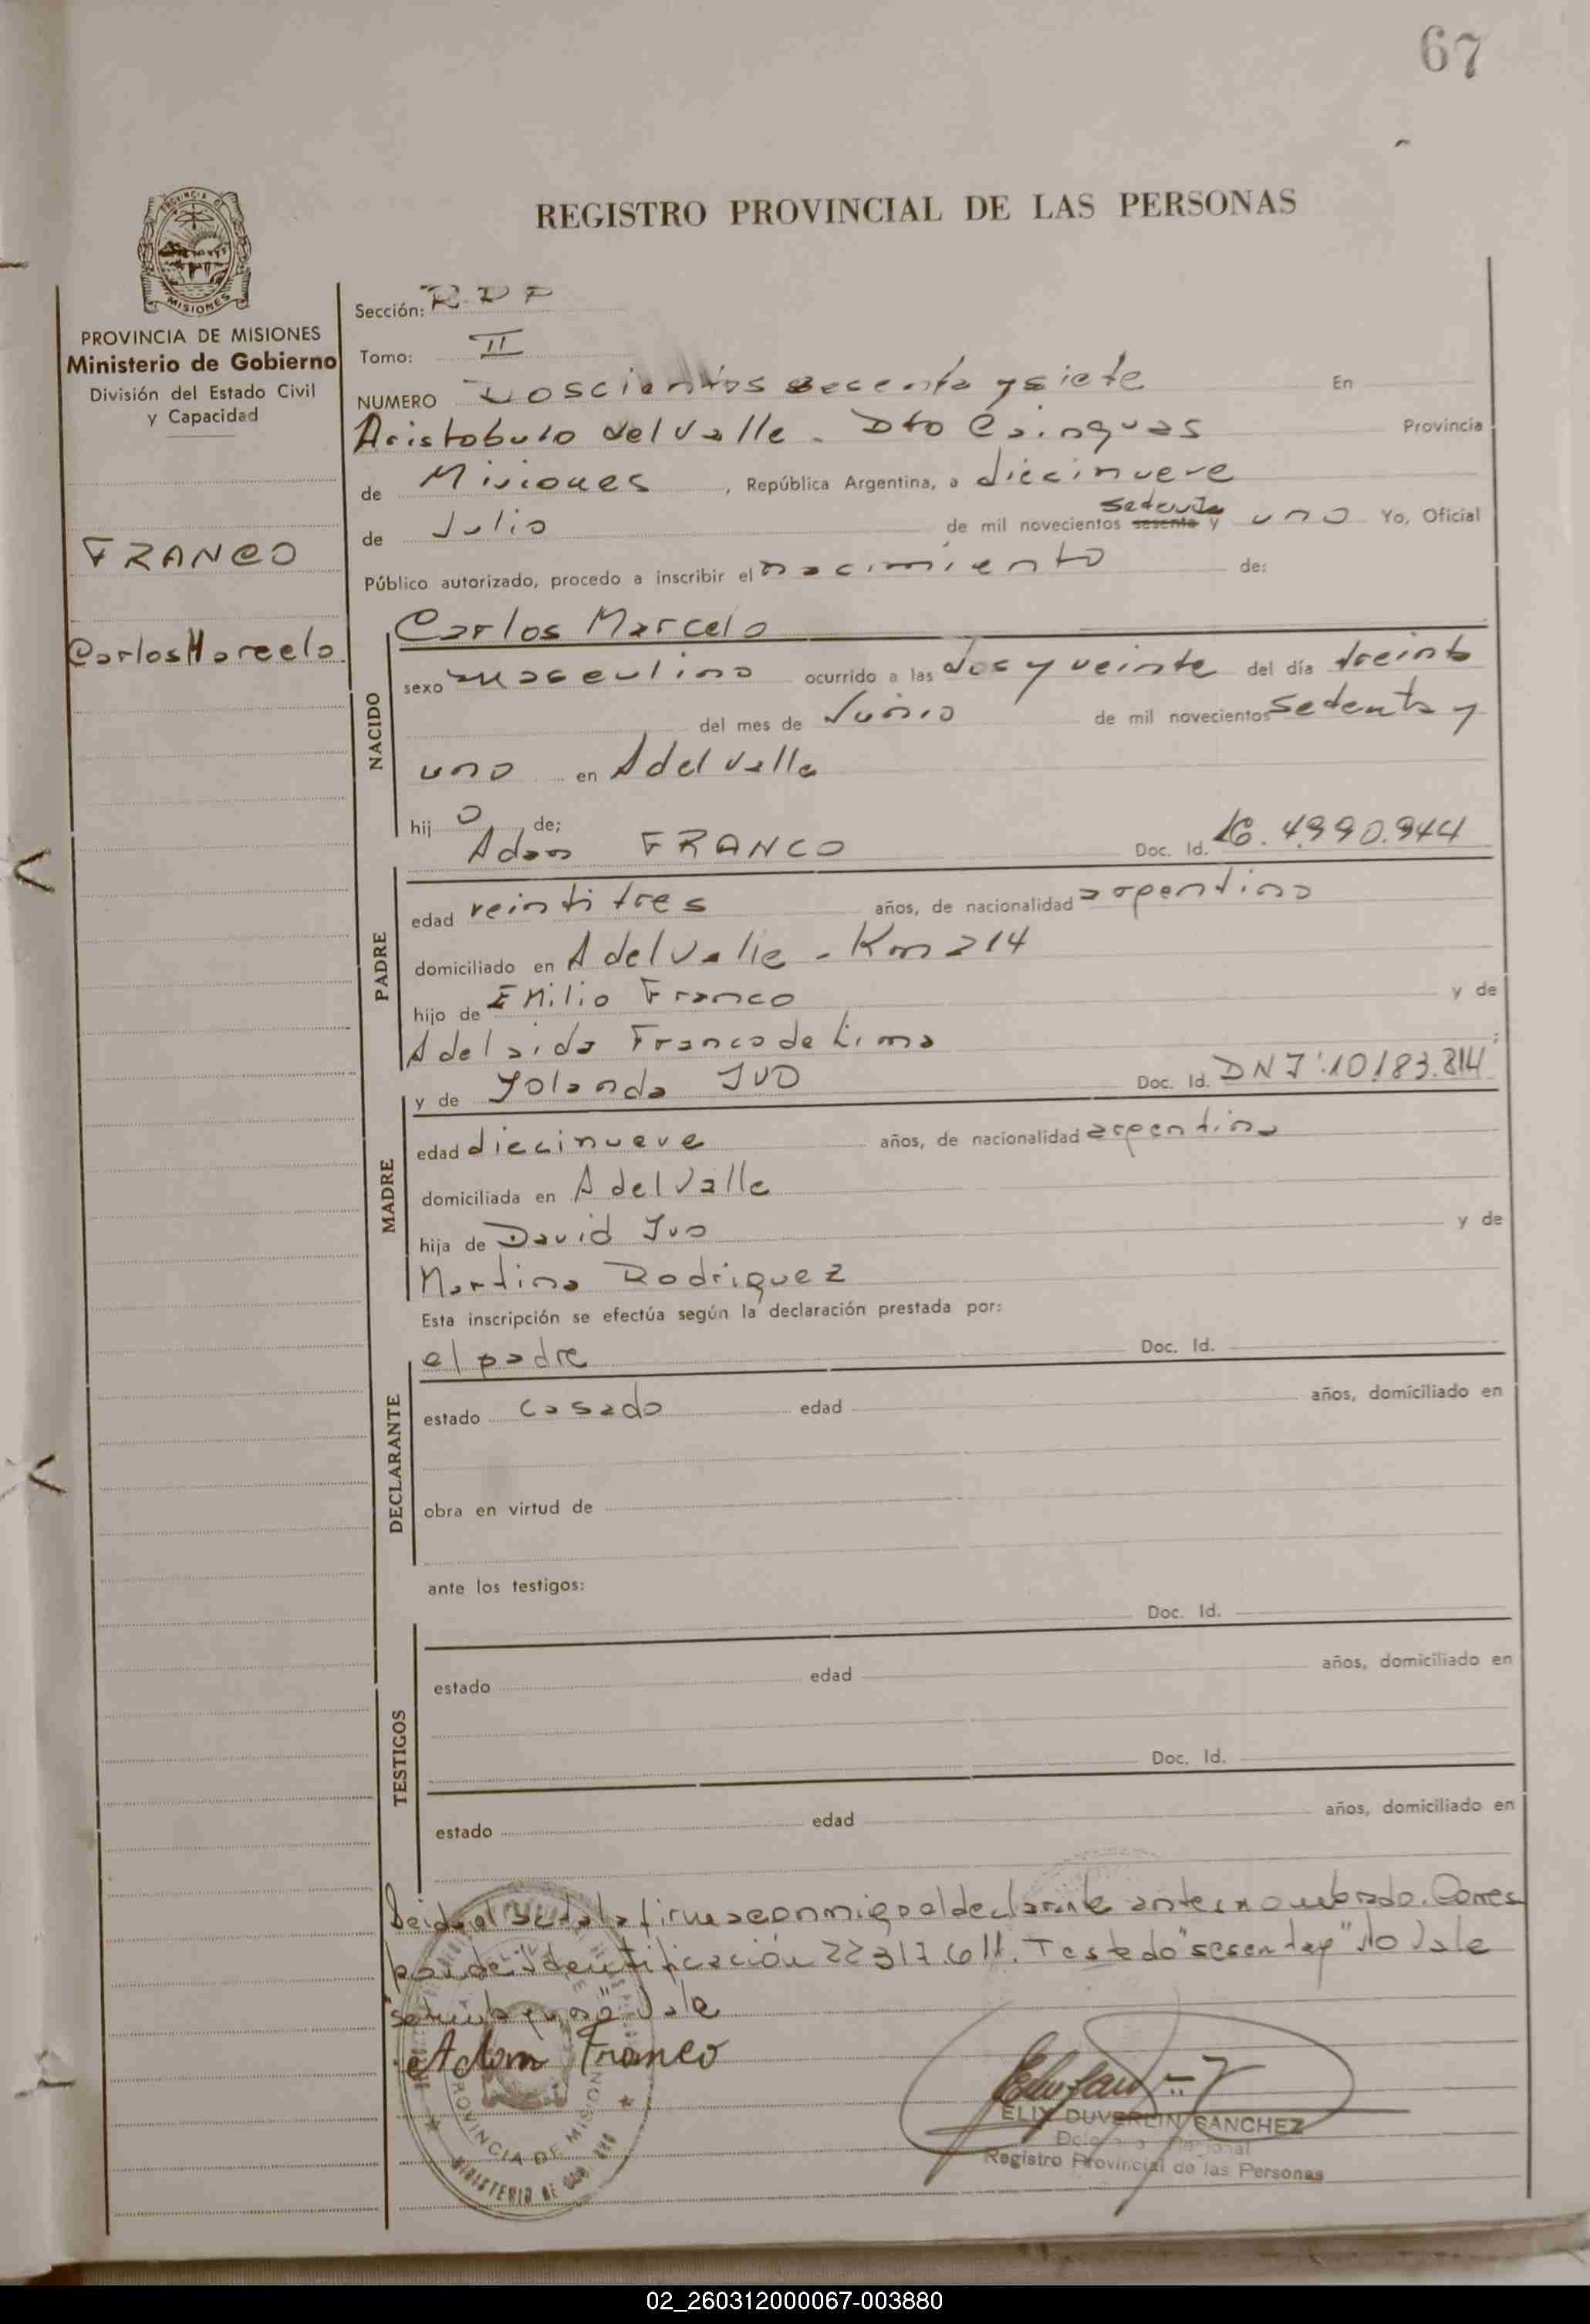 67
REGISTRO PROVINCIAL DE LAS PERSONAS
PROVINCIA DE MISIONES
Ministerio de Gobierno
División del Estado Civil
y Capacidad
FRANCO
Carlos Marcelo
Sección: RDP
Tomo: II
NUMERO Doscientos sesenta y siete En
Aristobulo del Valle - Dto Cainguas Provincia
de Misiones, República Argentina, a diecinueve
setenta
de Julio de mil novecientos sesenta y uno Yo, Oficial
Público autorizado, procedo a inscribir el nacimiento de:
NACIDO
Carlos Marcelo
sexo masculino ocurrido a las dos y veinte del día treinta
del mes de Junio de mil novecientos setenta y
uno en A del Valle
hij o de;
PADRE
Adan FRANCO Doc. Id.
edad veintitres años, de nacionalidad argentino
domiciliado en A del Valle - Km 214
hijo de Emilio Franco y de
Adelaida Franco de Lima
MADRE
y de Yolanda IVO Doc. Id. DNI: 10.183.814
edad diecinueve años, de nacionalidad argentina
domiciliada en A del Valle
hija de David Ivo y de
Martina Rodriguez
Esta inscripción se efectúa según la declaración prestada por:
DECLARANTE
el padre Doc. Id.
estado casado edad años, domiciliado en
obra en virtud de
ante los testigos:
TESTIGOS
Doc. Id.
estado edad años, domiciliado en
Doc. Id.
estado edad años, domiciliado en
Leida el acta la firma conmigo el declarante antes nombrado. Corres
ponde identificación 22317.611. Testado "sesenta y" No Vale
"setenta y uno" Vale
Adam Franco
ELIX DUVERLIN SANCHEZ
Registro Provincial de las Personas
PROVINCIA DE MISIONES
MINISTERIO DE GOB.
02_260312000067-003880